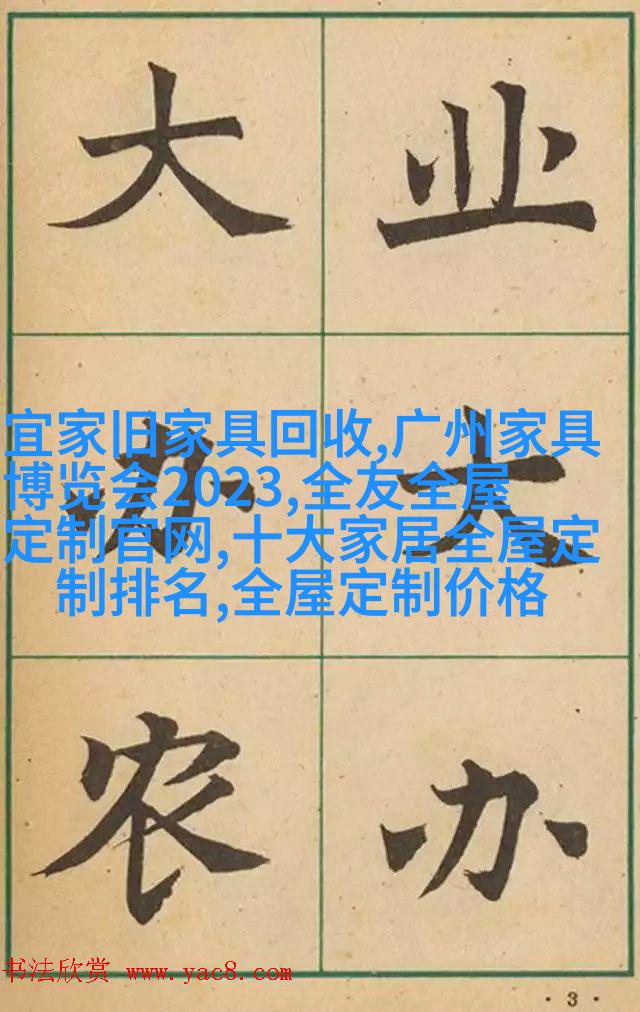 业大办
大办农
宜家旧家具回收,广州家具
博览会2023,全友全屋
定制官网,十大家居全屋定
制排名,全屋定制价格
书法欣赏 www.yac8.com
·3·